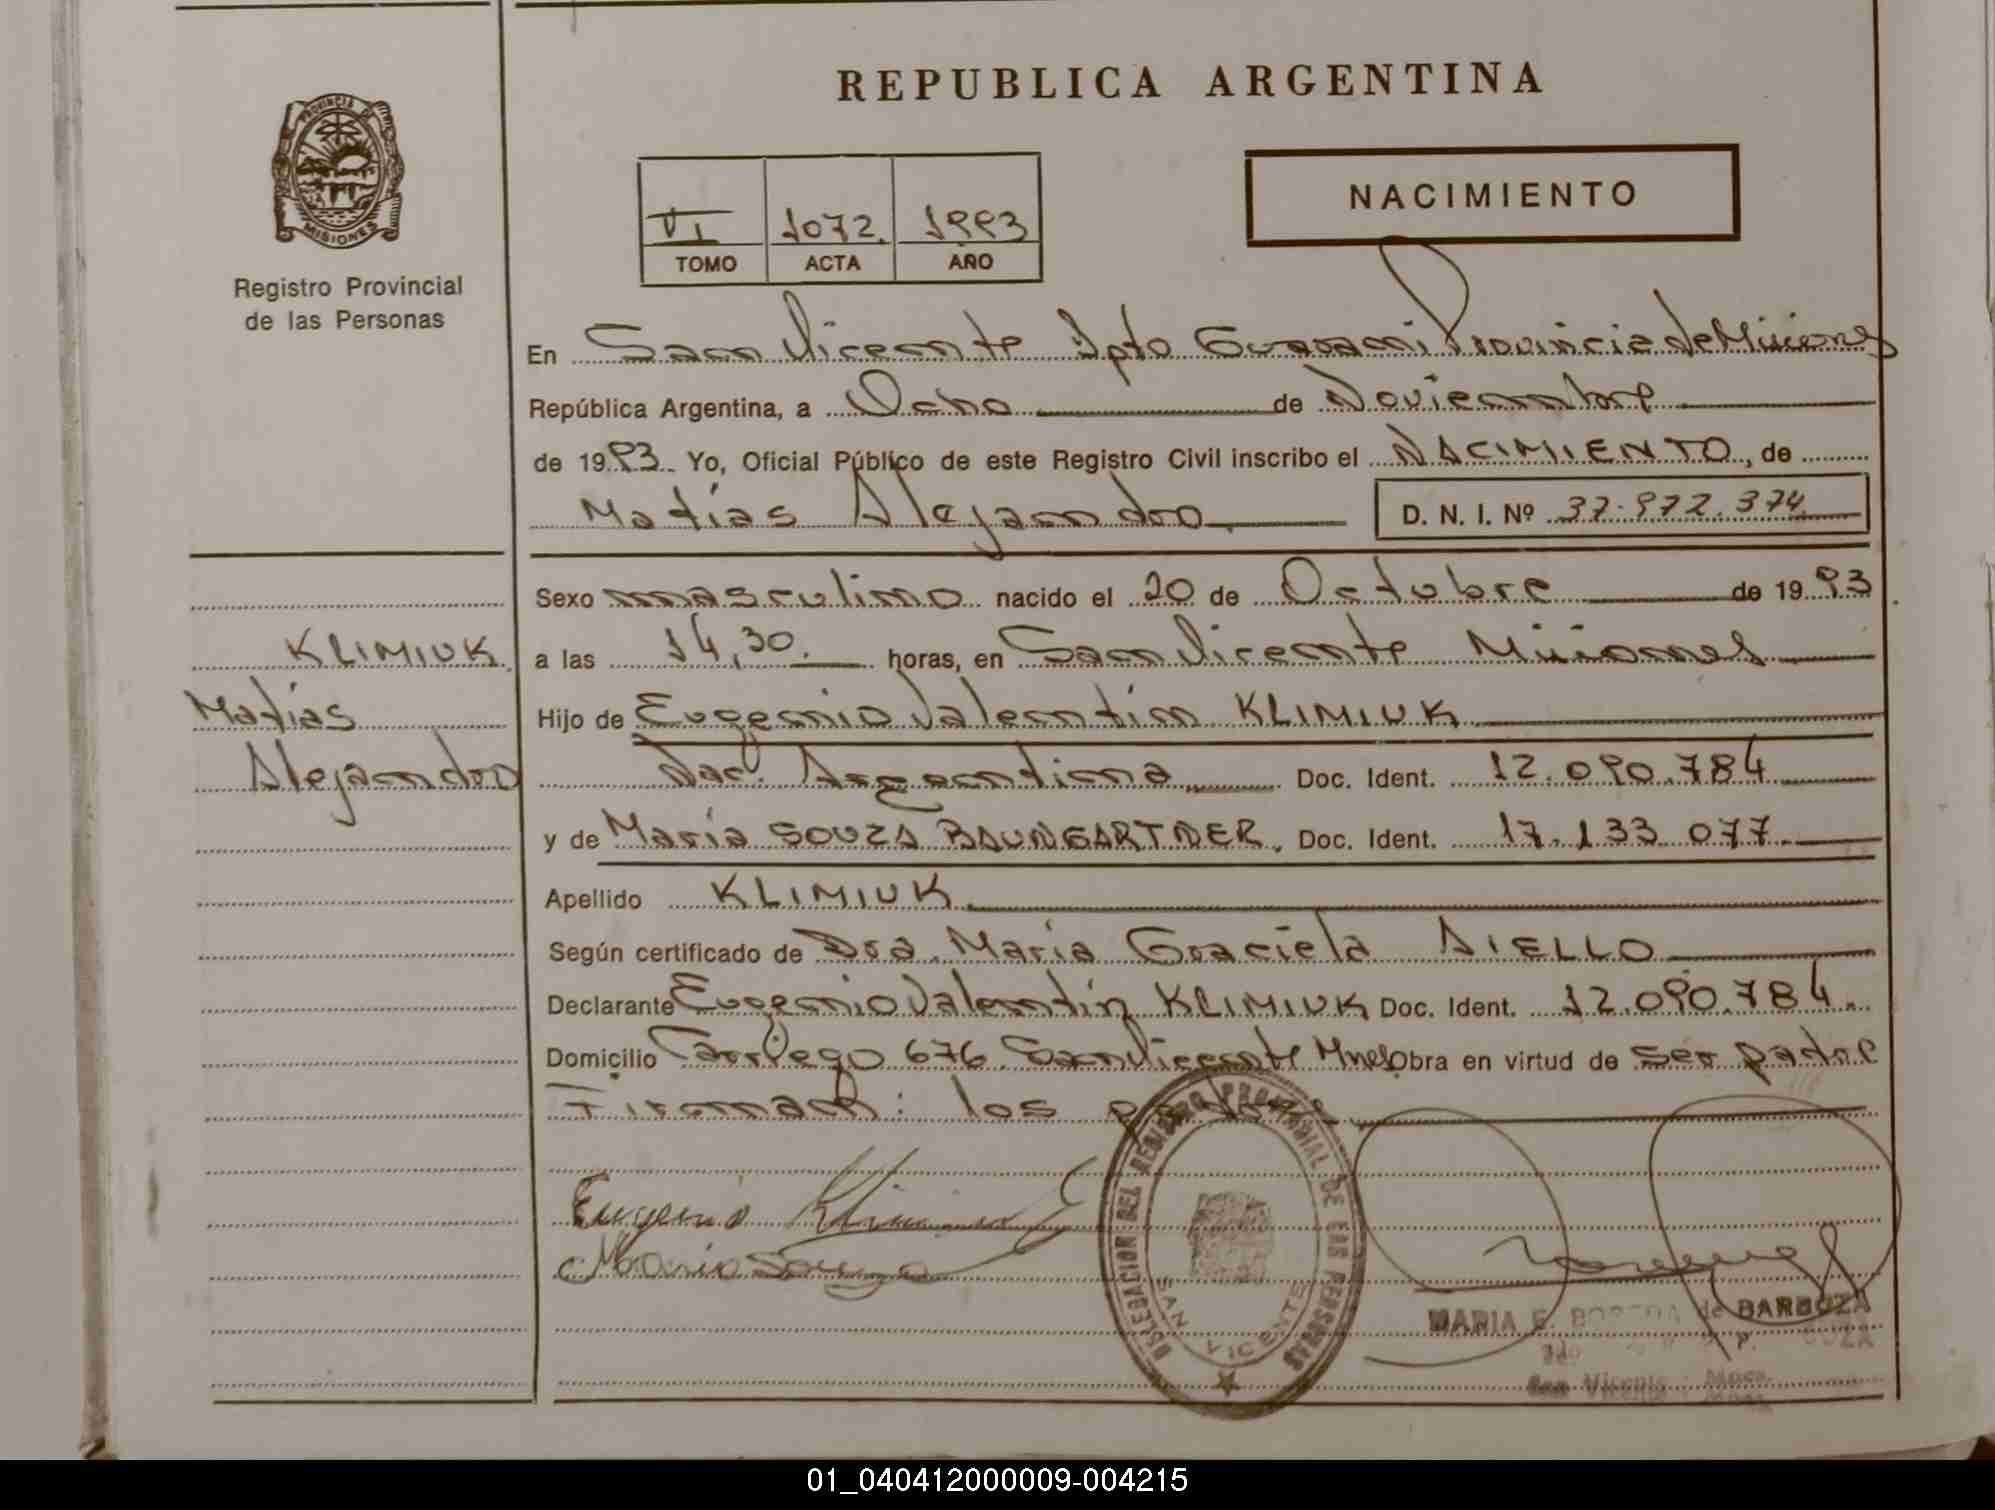 REPUBLICA ARGENTINA
PROVINCIA DE
MISIONES
Registro Provincial
de las Personas
NACIMIENTO
VI 1072. 1993
TOMO ACTA AÑO
En San Vicente Dpto Guarani Provincia de Misiones
República Argentina, a Ocho de Noviembre
de 1993. Yo, Oficial Público de este Registro Civil inscribo el NACIMIENTO, de
Matías Alejandro. D. N. I. Nº 37.972.374
Sexo masculino nacido el 20 de Octubre de 1993
KLIMIUK a las 14,30. horas, en San Vicente Misiones
Matías Hijo de Eugenio Valentín KLIMIUK
Alejandro Nac. Argentina Doc. Ident. 12.090.784
y de María SOUZA BAUNGARTNER, Doc. Ident. 17.133.077.
Apellido KLIMIUK
Según certificado de Dra. María Graciela AIELLO
Declarante Eugenio Valentín KLIMIUK Doc. Ident. 12.090.784.
Domicilio Carriego 676. San Vicente Mnes Obra en virtud de ser padre
Firman: los padres
Eugenio Klimiuk
Maria Souza
DELEGACION DEL REGISTRO PROVINCIAL DE LAS PERSONAS
SAN VICENTE
MARIA E. de BARBOZA
San Vicente Mnes.
01_040412000009-004215